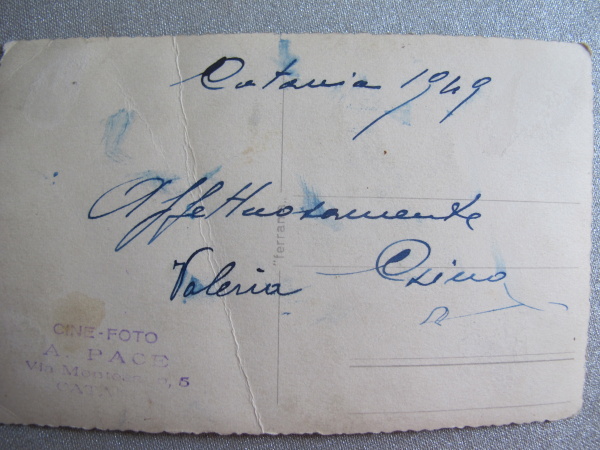 Catania 1949
Affettuosamente
Valeria
"ferrania
CINE-FOTO
A. PACE
Via
5
CATA